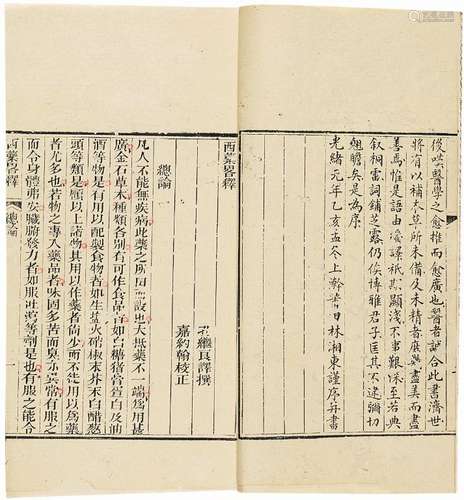 後嘆醫學之愈推而愈廣也醫者誠合此書濟世
將有以補本草所未備及未精者庶幾盡美而盡
善焉惟是語由愛譯祇其顯淺不事艱深至若典
叙桐雷詞鋪芝露仍俟博雅君子匡其不逮彌切
翹瞻矣是為序
光緒元年乙亥孟冬上澣番日林湘東謹序并書
西藥畧釋
孔繼良譯撰
嘉約翰校正
總論
凡人不能無疾病此藥之所由設也大抵藥不一端為用甚
廣金石草木種類各別有可作食品者如白糖猪膏荳及油
酒等物是有用以配製食物者如生鹽火硝椒末芥末白醋葱
頭等類是顧以上諸物其用以作藥者尚少所不能用以為藥
者尤多也若物之專入藥品者味固多苦而臭亦異常有服之
而令身體肅安臟腑發力者如服吐瀉等劑是也有服之能令
西藥畧釋
總論
一